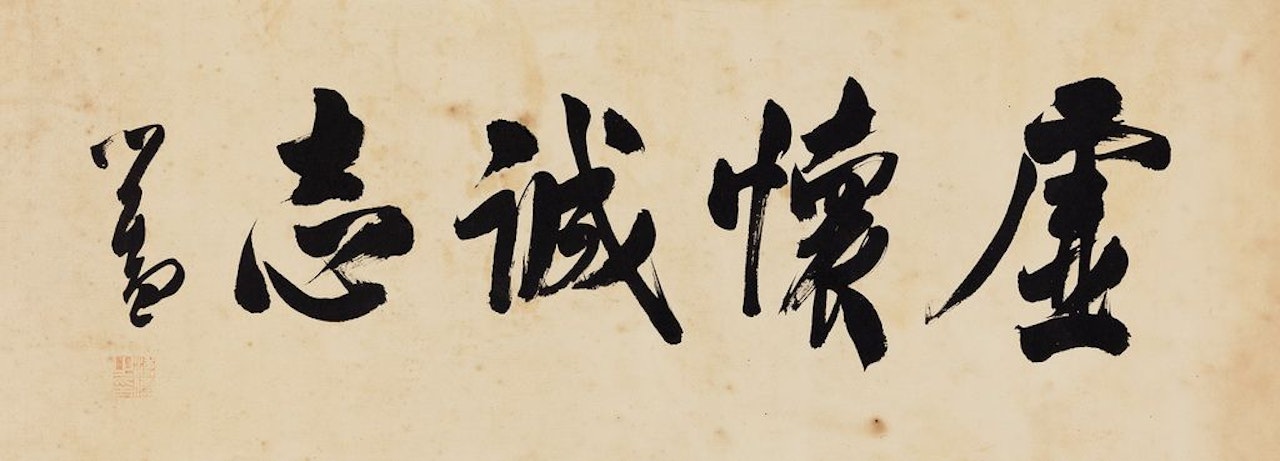 虛懷誠志